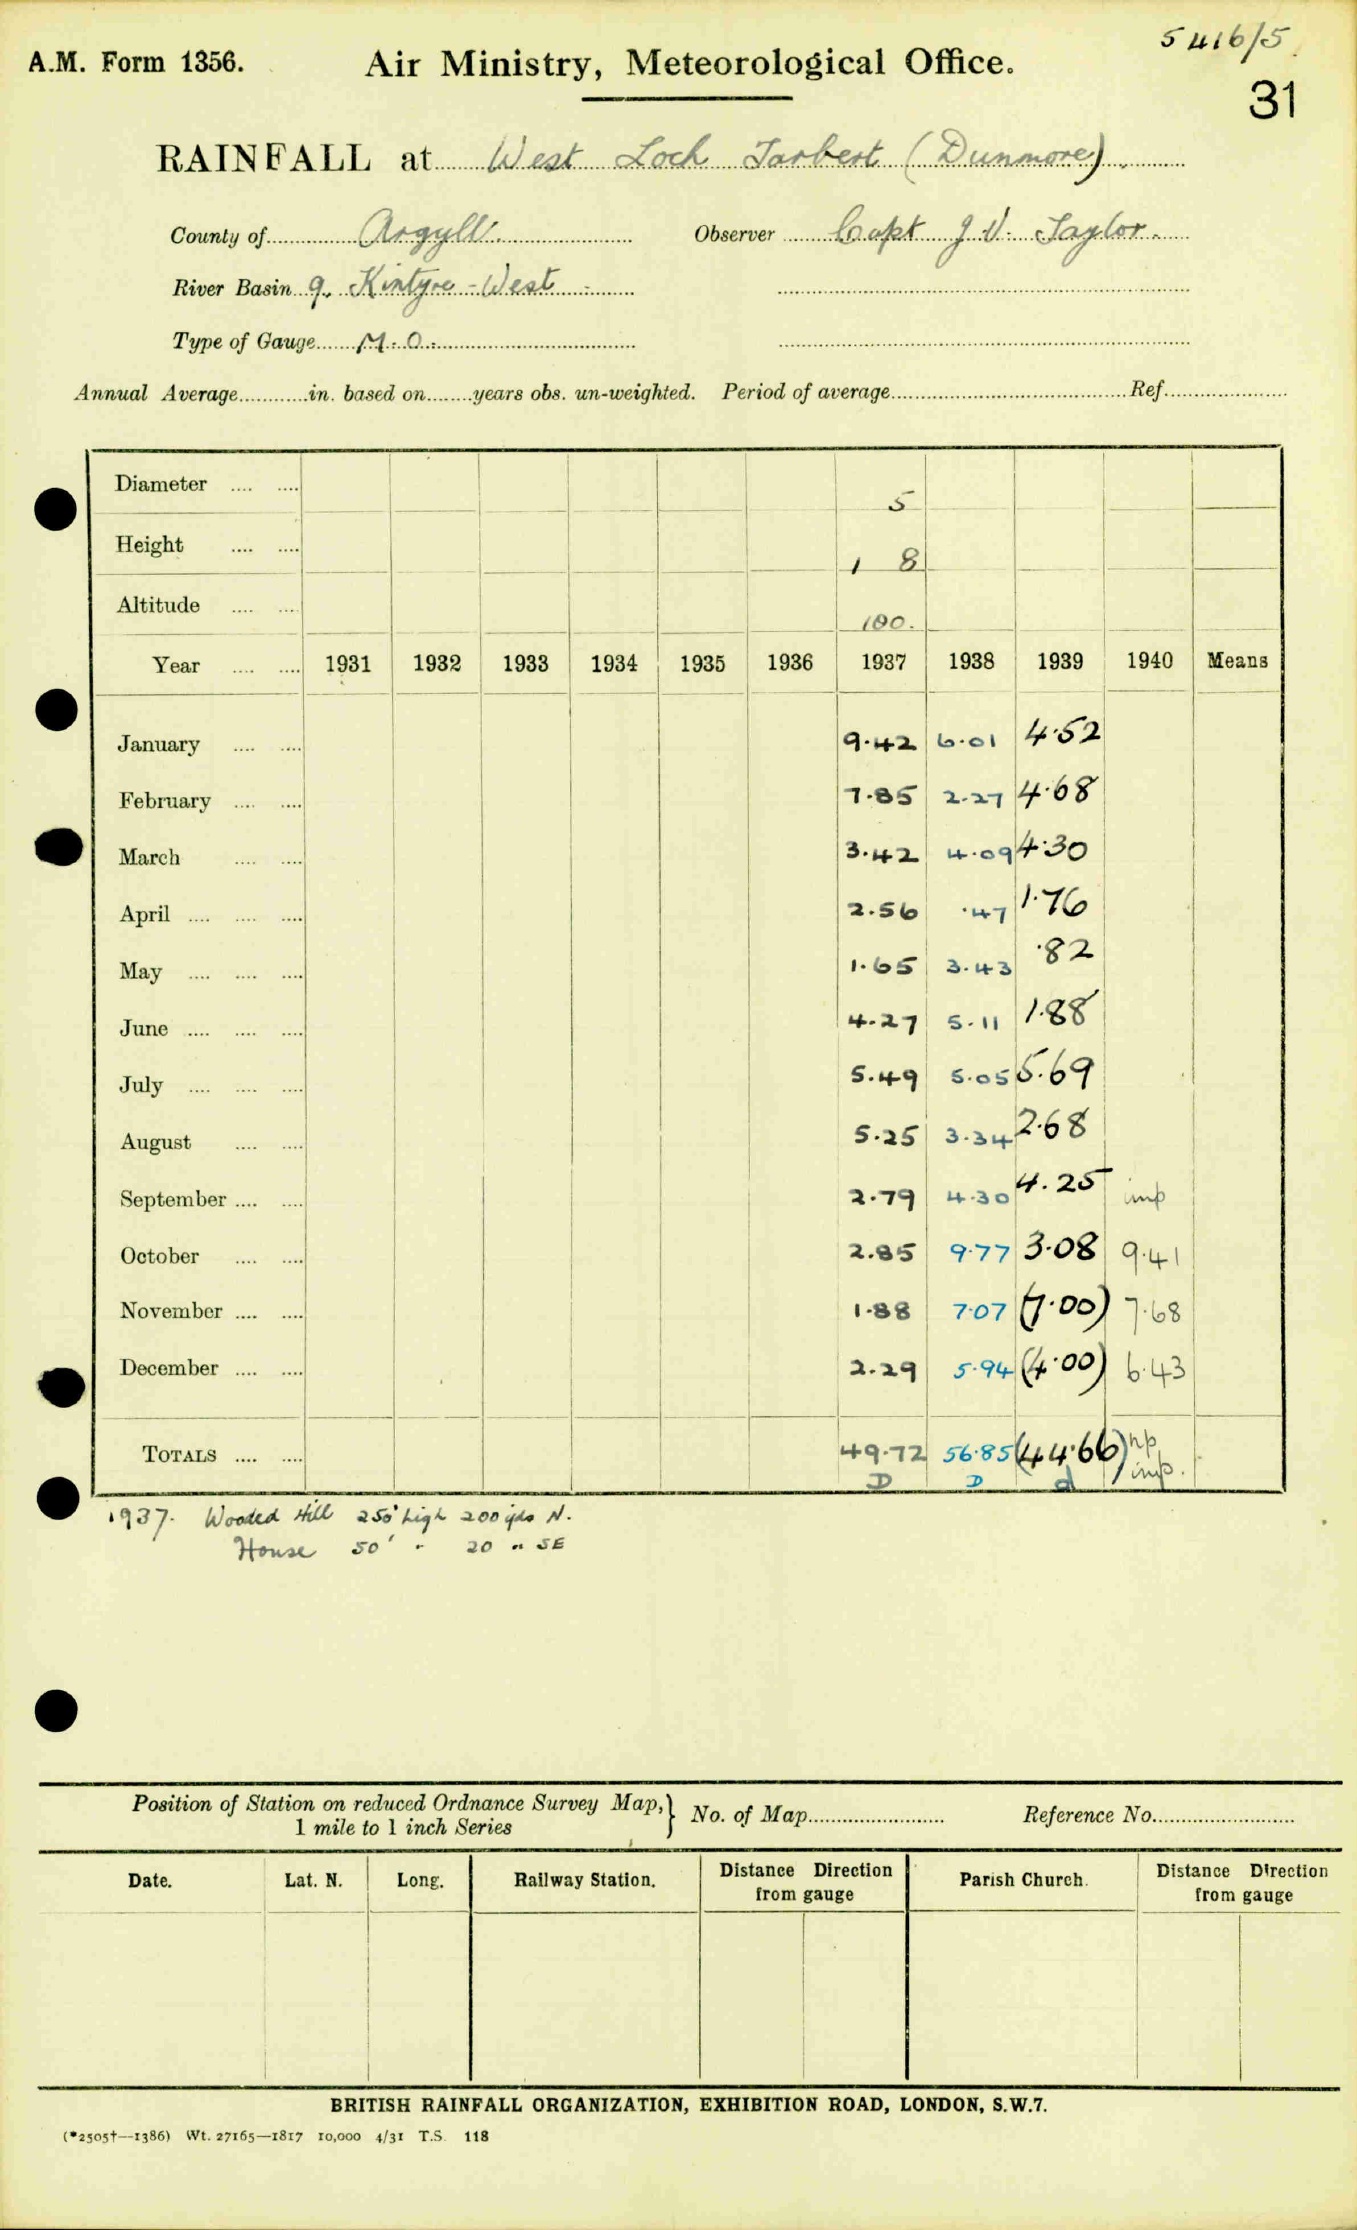 5416/5
A.M. Form 1356. Air Ministry, Meteorological Office.
31
RAINFALL at West Loch Tarbert (Dunmore).
County of Argyll. Observer Capt J. V. Taylor.
River Basin 9. Kintyre - West
Type of Gauge M.O.
Annual Average............in. based on........years obs. un-weighted. Period of average............ Ref............
Diameter .... .... 5
Height .... .... 1 8
Altitude .... .... 100.
Year .... .... 1931 1932 1933 1934 1935 1936 1937 1938 1939 1940 Means
January .... .... 9.42 6.01 4.52
February .... .... 7.85 2.27 4.68
March .... .... 3.42 4.09 4.30
April .... .... .... 2.56 .47 1.76
May .... .... .... 1.65 3.43 .82
June .... .... .... 4.27 5.11 1.88
July .... .... .... 5.49 5.05 5.69
August .... .... 5.25 3.34 2.68
September .... .... 2.79 4.30 4.25 imp
October .... .... 2.85 9.77 3.08 9.41
November .... .... 1.88 7.07 (7.00) 7.68
December .... .... 2.29 5.94 (4.00) 6.43
TOTALS .... .... 49.72 56.85 (44.66) np
D D d imp.
1937. Wooded Hill 250' high 200 yds N.
House 50' " 20 " SE
Position of Station on reduced Ordnance Survey Map,} No. of Map............ Reference No............
1 mile to 1 inch Series
Date. Lat. N. Long. Railway Station. Distance Direction Parish Church. Distance Direction
from gauge from gauge
BRITISH RAINFALL ORGANIZATION, EXHIBITION ROAD, LONDON, S.W.7.
(*2505†—1386) Wt. 27165—1817 10,000 4/31 T.S. 118